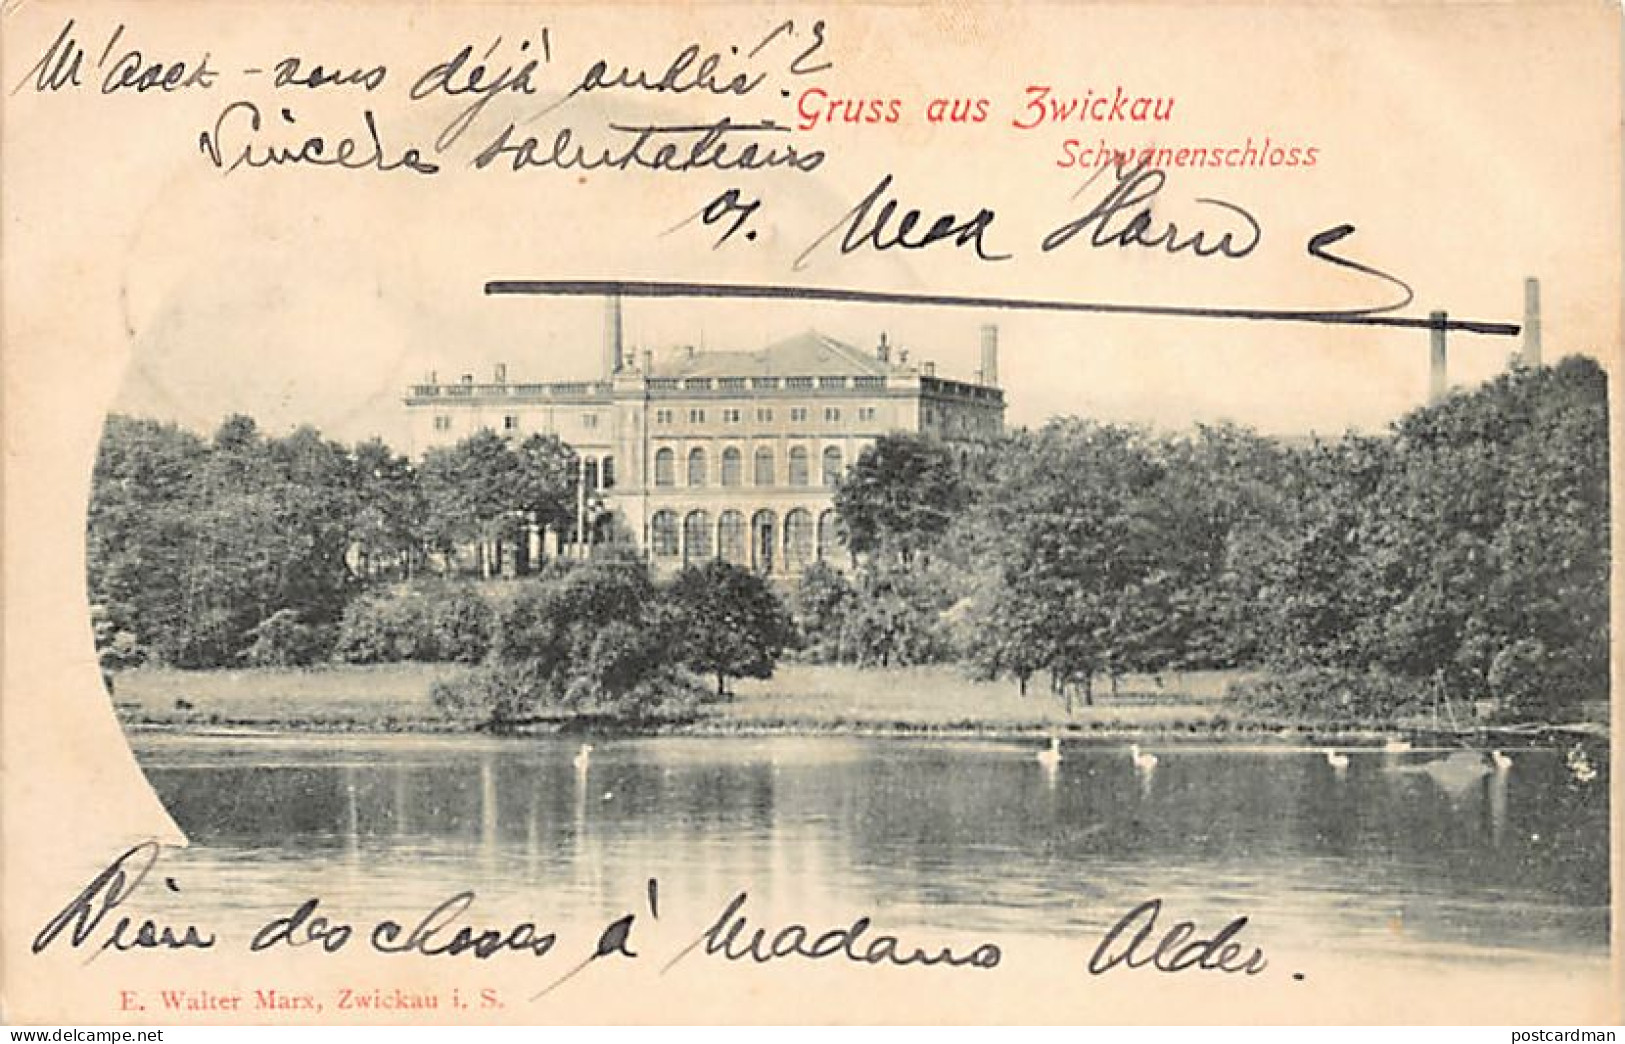 M'avez-vous déjà oublié?
Gruss aus Zwickau
Sincères salutations
Schwanenschloss
Max Horn
Bien des choses à Madame Alder.
E. Walter Marx, Zwickau i. S.
postcardman
www.delcampe.net